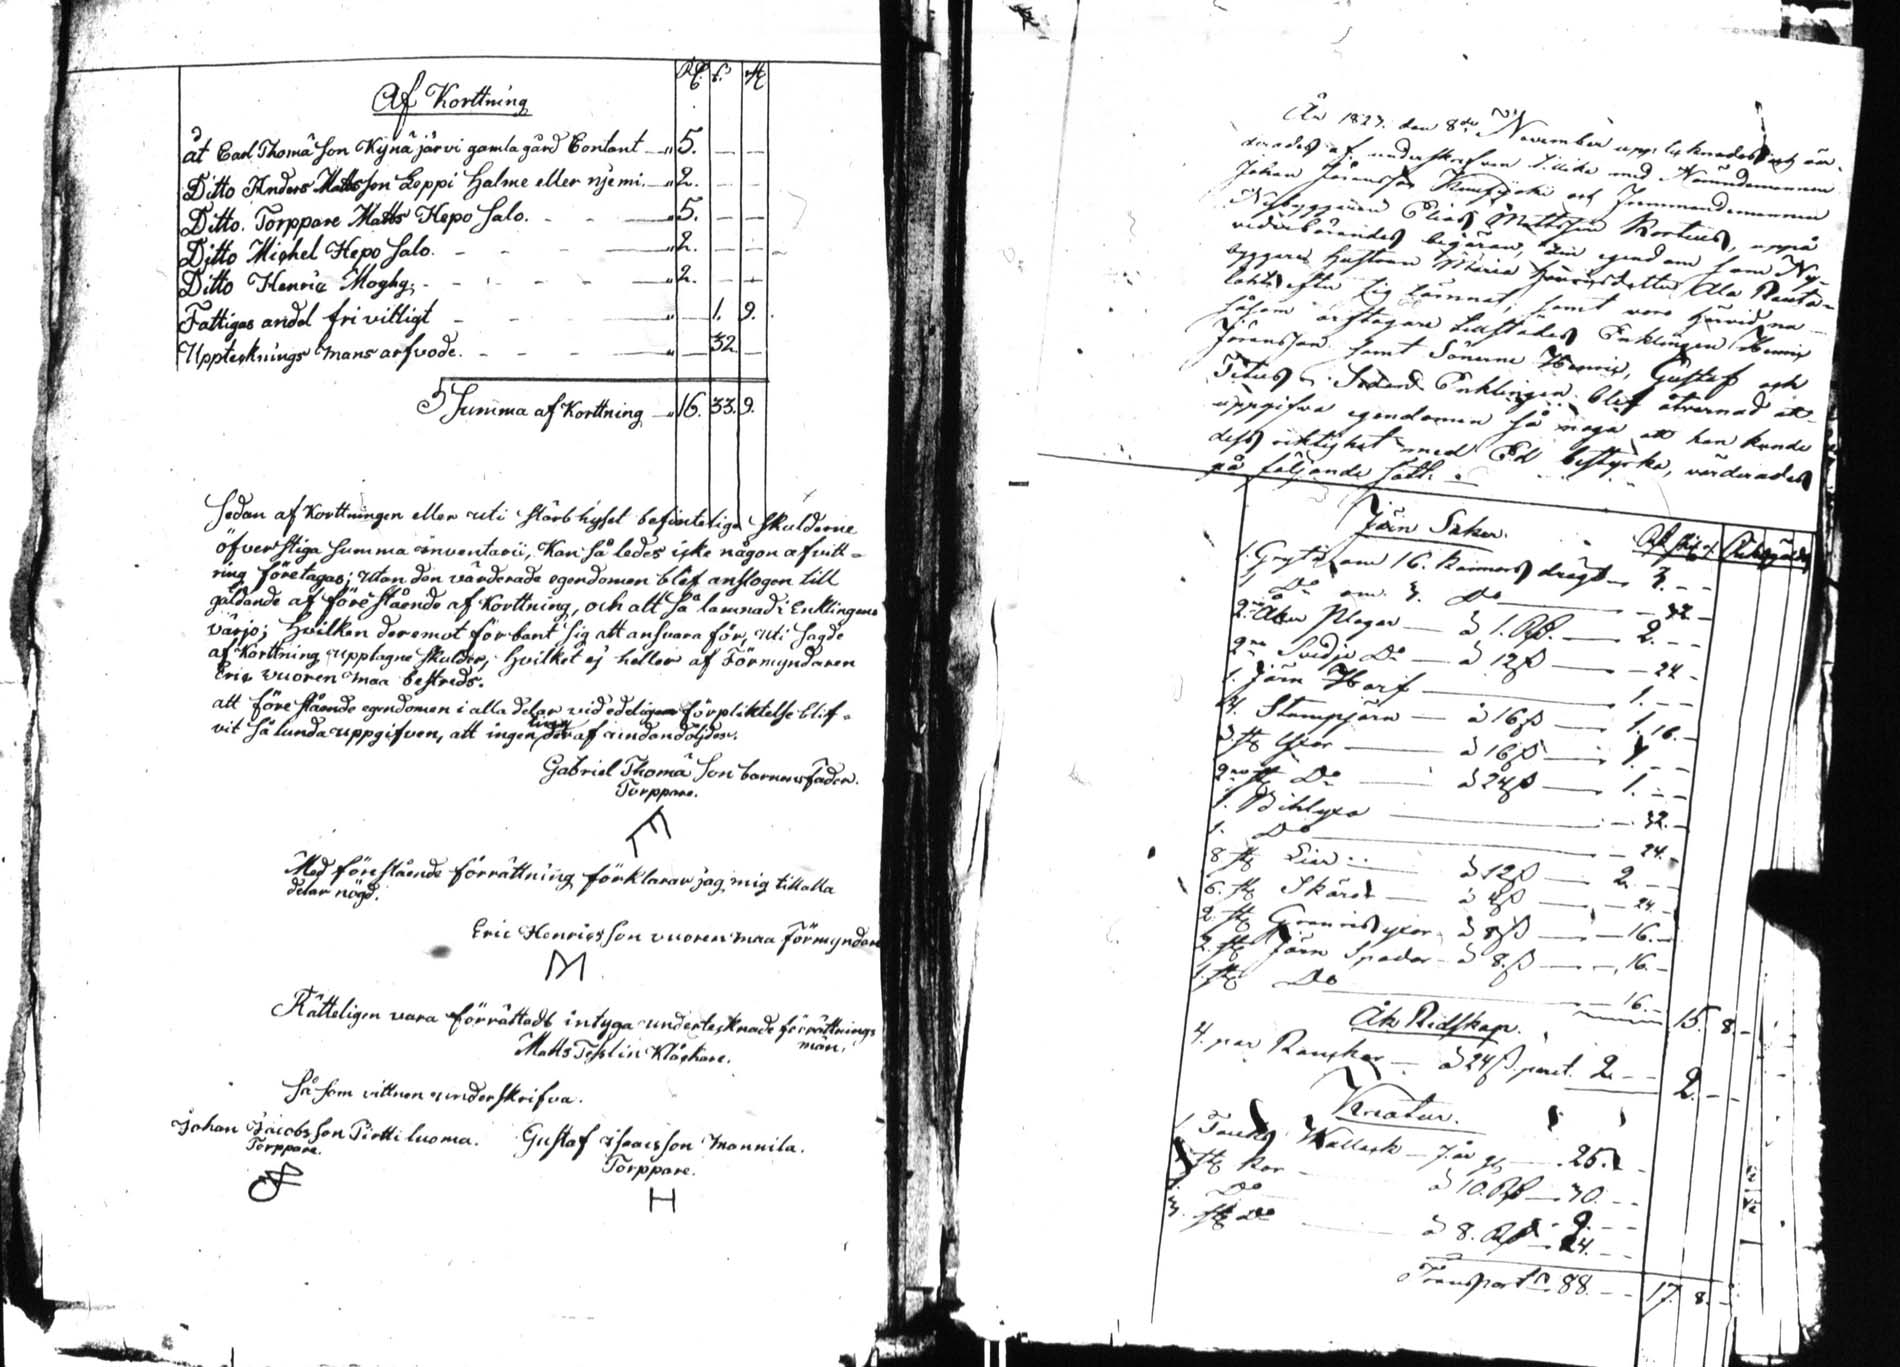 Af Korttning
Rb. s. rs
åt Carl Thomä Son Kynäjärvi gamla gård Contant — " 5. — —
Ditto Anders Matts Son Leppi Halme eller njemi. — " 2. — —
Ditto. Torppare Matts Hepo Salo. - - — " 5. — —
Ditto Michel Hepo Salo. - - - — " 2. — —
Ditto Henric - - - - — " 2. — —
Fattigas andel frivilligt - - - — " — 1. 9.
Uppteknings mans arfvode. - - - — " — 32 —
Summa af Korttning — " 16. 33. 9.
Sedan af Korttningen eller uti stärbhuset befintelige skulderne
öfverstiga Summa inventarii, Kan så ledes icke någon afvitt-
ring företagas; utan den värderade egendomen blef anslagen till
gäldande af föreståënde af Korttning, och allt så lämnad i Enklingens
värjo; hvilken deremot förbant sig att ansvara för, uti sagde
af Korttning upptagne skulder, hvilket ej heller af Förmyndaren
Eric vuoren maa bestreds.
att föreståënde egendomen i alla delar vid edelig förpliktelse blif-
vit så lunda uppgifven, att ingen ting der af undandöljdes.
Gabriel Thomä Son barnens Fader.
Torppare.
Med föreståënde förrättning förklarar jag mig till alla
delar nögd.
Eric Henrics Son vuoren maa Förmyndare
M
Rätteligen vara förrättadt intyga underteknade förrättnings
män.
Matts Teslin Klåckare.
Så som vittnen underskrifva.
Johan Jacobs Son Pirttiluoma. Gustaf Isacs Son Mannila.
Torppare. Torppare.
H
År 1827. den 8de November upp teknades och vär-
derades af underskrifven tillika med Nämndemannen
Johan Jöransson och
Nybyggaren Elias Mattsson Kortus, uppå
vederbörandes begäran, den egendom som Ny-
byggare Hustrun Maria Ala Rauta-
lahti efter sig lämnat, samt voro härvid na-
såsom arftagare tillstädes Enklingen Henric
Jöransson samt Sönerne Henric, Gustaf och
Titus. Sedan Enklingen blef åtvarnad att
uppgifva egendomen så noga att han kunde
dess riktighet med Ed bestyrka, värderades
på följande sätt.
Järn Saker.
1. Gryta om 16. Kannors drägt — 3. - -
1 Do om 3. Do — - 32. -
2ne Åker Plogar — à 1. Rb. — 2. - -
2ne Svedje Do — à 12 s — - 24 -
1. Järn Harf — 1. - -
4. Stampjärn — à 16 s — 1. 16. -
3 st Yxor — à 16 s — 1. - -
2ne st Do — à 24 s — 1. - -
1. Bihlyxa — - 32. -
1. Do — - 24. -
8 st Liar à 12 s — 2. - -
6. st Skäror — à 4 s — - 24. -
2. st yxor à 8 s — - 16. -
2. st Järn Spadar à 8. s — - 16. -
1. st Do — - 16. - 15. 8. -
Åk Ridskap.
4. par — à 24 s paret. 2. - - 2. - -
Kreatur.
1. Wallack — 7. år — 25. - -
st Kor — à 10. Rb — 30. - -
1. Do — 9. - -
3. st Do — à 8. Rb — 24. - -
Transport 88. - - 17. 8. -